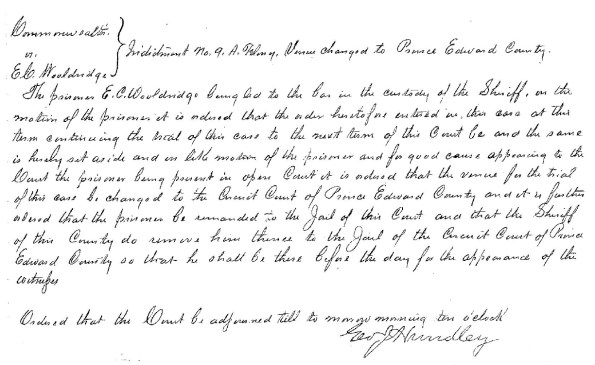 Commonwealth.
vs.
E.C. Wooldridge
Indictment No. 9. A Felony, Venue changed to Prince Edward County.
The prisoner E.C. Wooldridge being led to the bar in the custody of the Sheriff, on the
motion of the prisoner it is ordered that the order heretofore entered in this case at this
term continuing the trial of this case to the next term of this Court be and the same
is hereby set aside and on like motion of the prisoner and for good cause appearing to the
Court the prisoner being present in open Court it is ordered that the venue for the trial
of this case be changed to the Circuit Court of Prince Edward County and it is further
ordered that the prisoner be remanded to the Jail of this Court and that the Sheriff
of this County do remove him thence to the Jail of the Circuit Court of Prince
Edward County so that he shall be there before the day for the appearance of the
witnesses
Ordered that the Court be adjourned till to morrow morning ten o'clock
Geo J Hundley